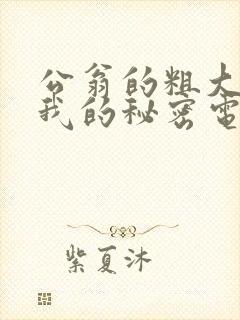 公翁的粗大
我的秘密电
紫夏沐